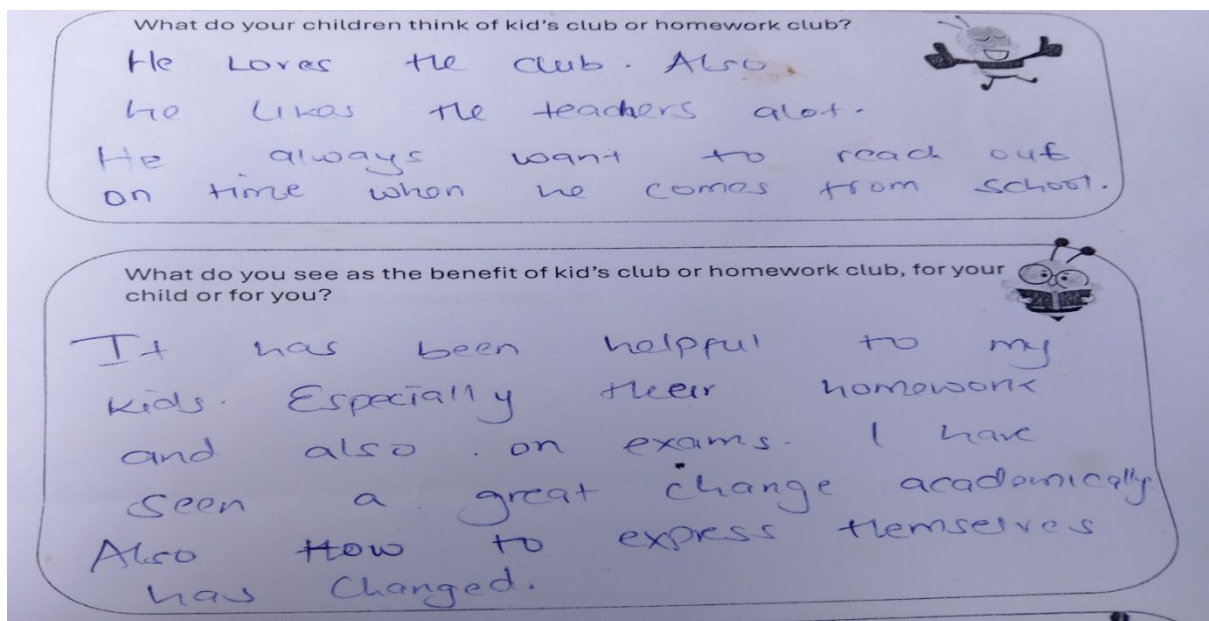 What do your children think of kid's club or homework club?
He Loves the club. Also
he likes the teachers alot.
He always want to reach out
on time when he comes from school.
What do you see as the benefit of kid's club or homework club, for your
child or for you?
It has been helpful to my
kids. Especially their homework
and also on exams. I have
seen a great change academically
Also How to express themselves
has changed.